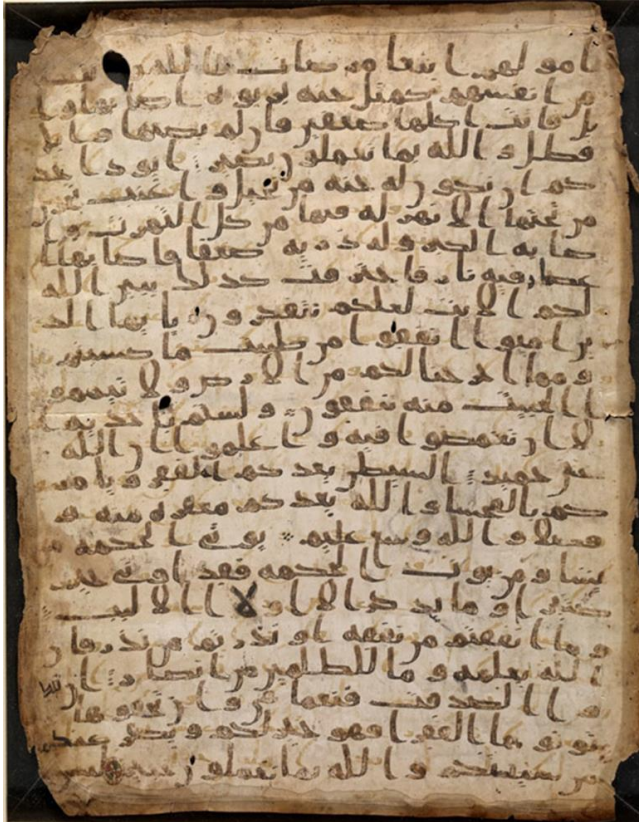 امولهم ابتغا مرضات الله و
من انفسهم كمثل جنة بربوة اصابها وا
بل فاتت اكلها ضعفين فان لم يصبها وابل
فطل والله بما تعملون بصير ايود احد
كم ان تكون له جنة من نخيل واعنب تجري
من تحتها الانهر له فيها من كل الثمرت وا
صابه الكبر وله ذرية ضعفا فاصابها ا
عصار فيه نار فاحترقت كذلك يبين الله
لكم الايت لعلكم تتفكرون يايها الذ
ين امنوا انفقوا من طيبت ما كسبتم
ومما اخرجنا لكم من الارض ولا تيممو
ا الخبيث منه تنفقون ولستم باخذيه ا
لا ان تغمضوا فيه واعلموا ان الله
غني حميد الشيطن يعدكم الفقر ويامر
كم بالفحشا والله يعدكم مغفرة منه و
فضلا والله وسع عليم يوتي الحكمة من
يشا ومن يوت الحكمة فقد اوتي خير
كثيرا وما يذكر الا اولا الالبب
وما انفقتم من نفقة او نذرتم من نذر فان
الله يعلمه وما للظلمين من انصار ان
وا الصدقت فنعما هي وان تخفوها
وتوتوها الفقرا فهو خير لكم ويكفر عنكم
من سيتكم والله بما تعملون خبير ليس